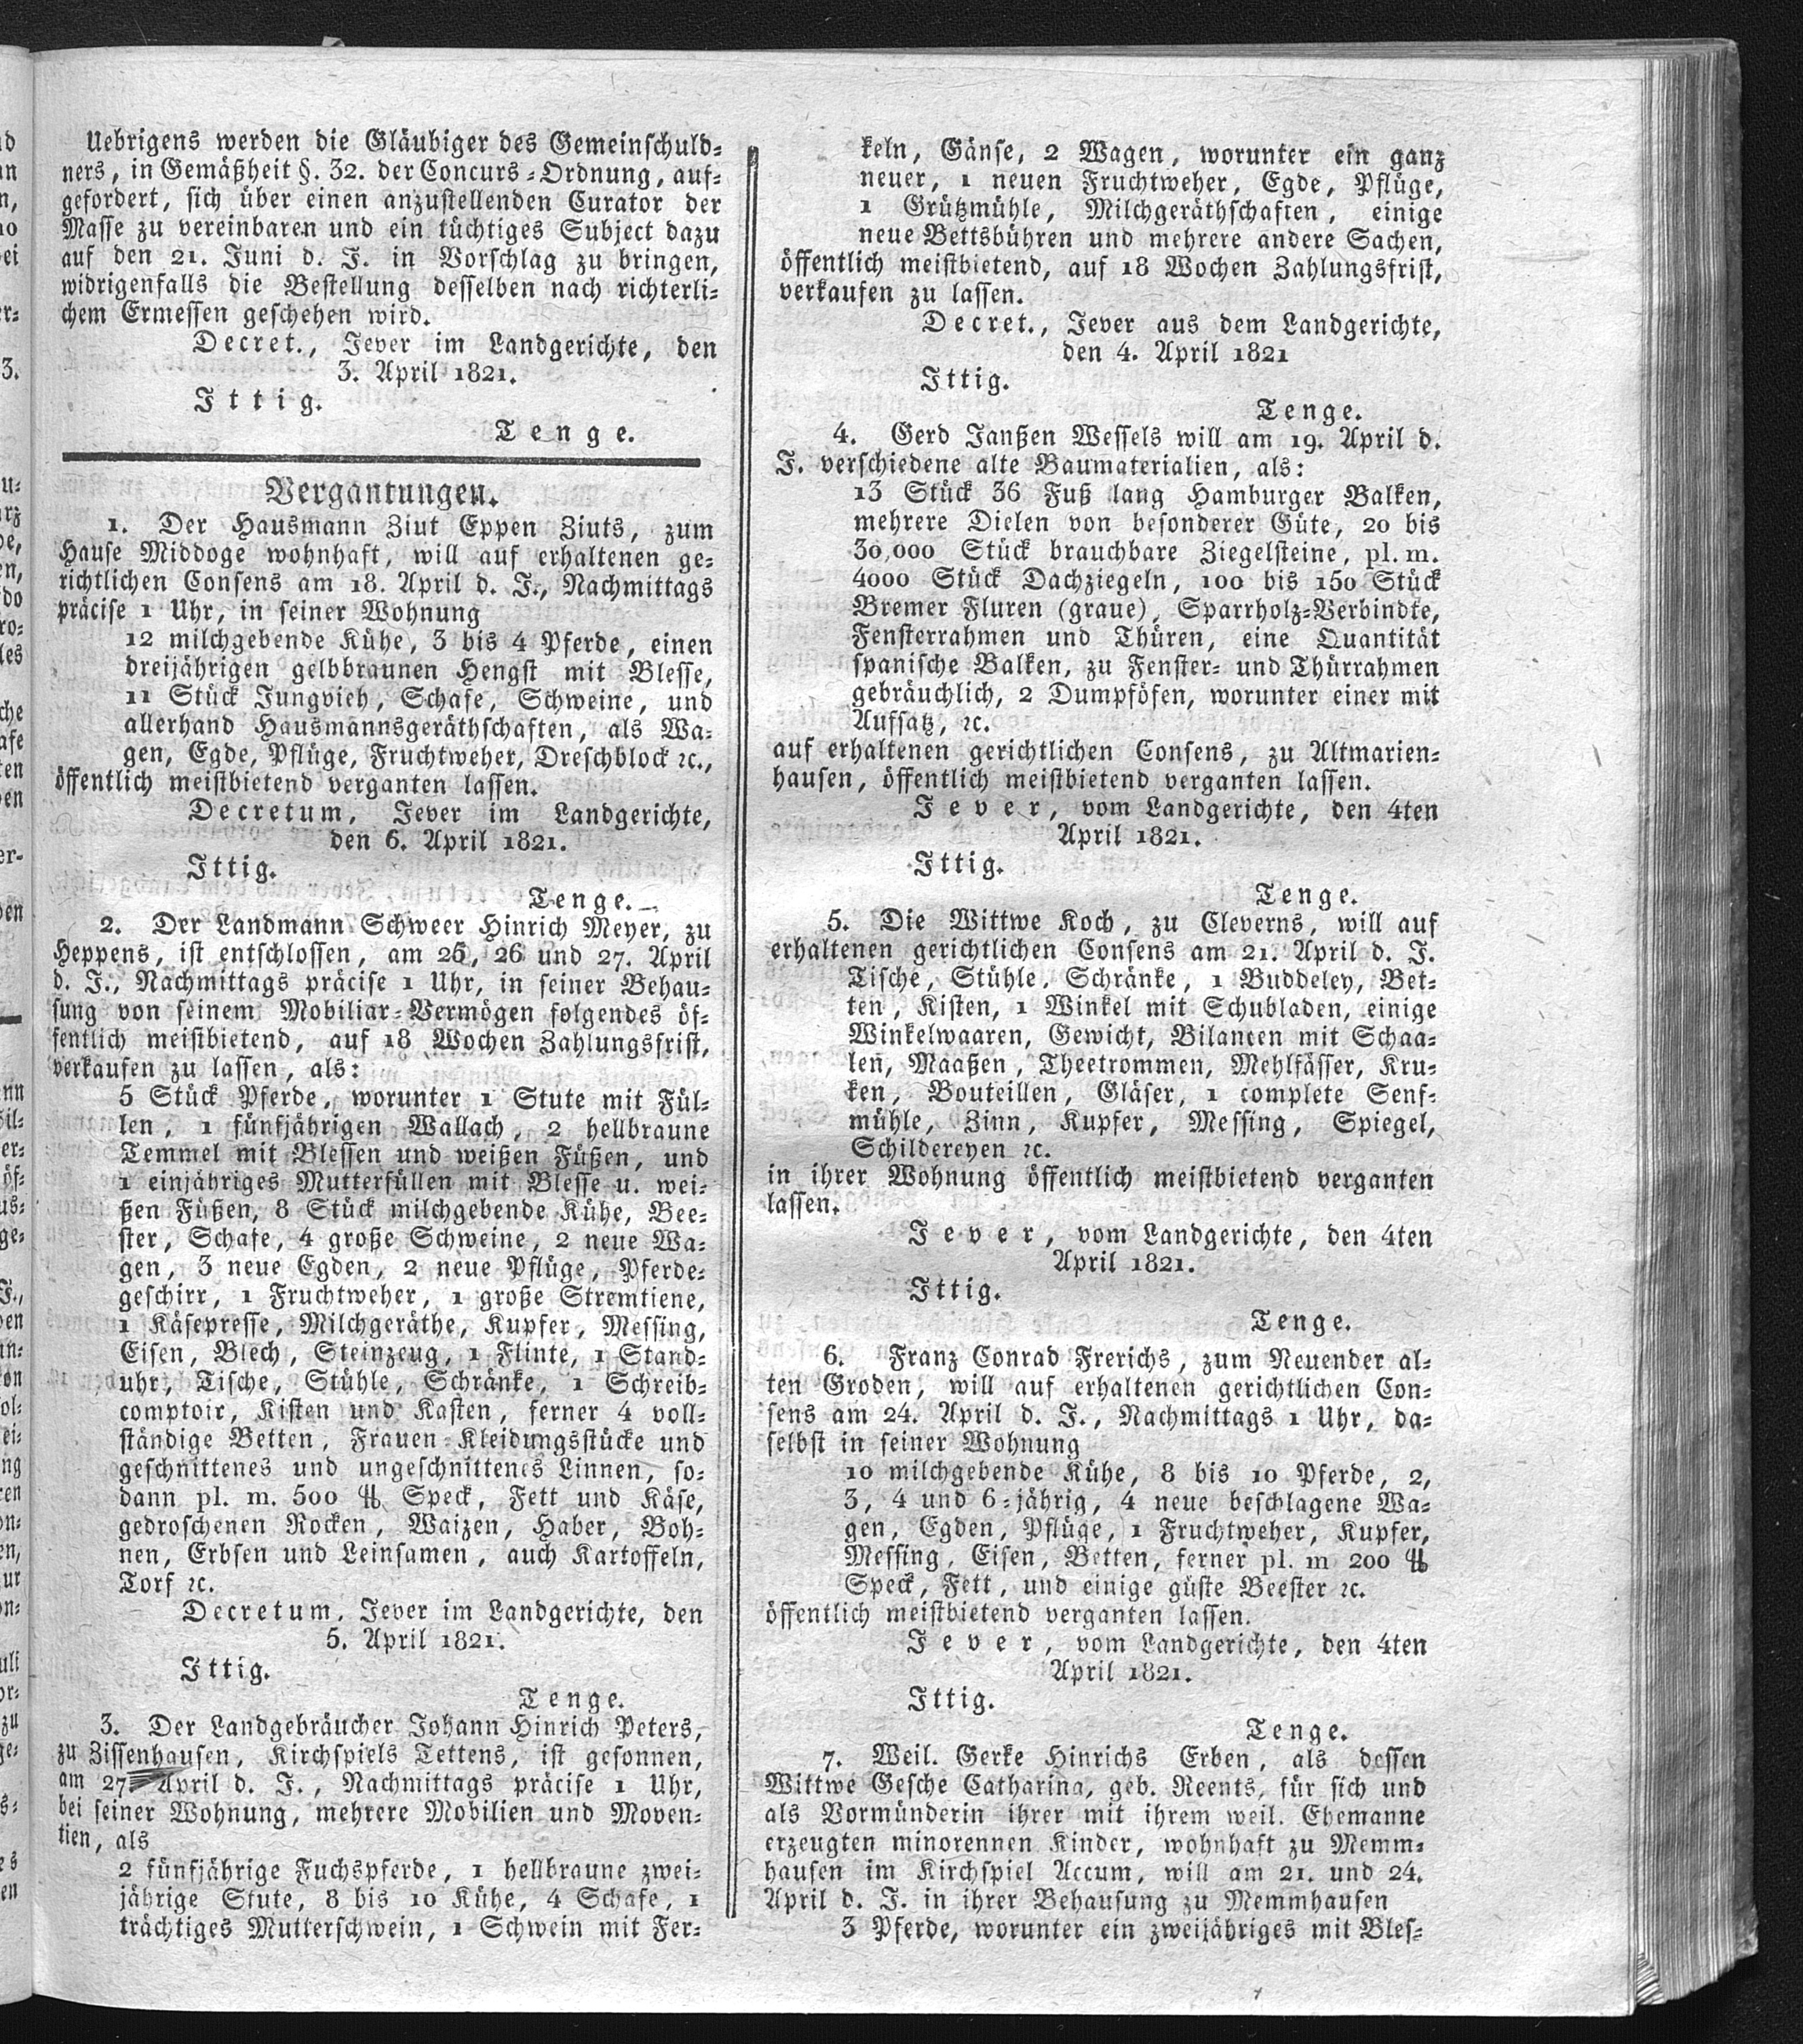 Uebrigens werden die Gläubiger des Gemeinschuld-
ners, in Gemäßheit §. 32. der Concurs-Ordnung, auf-
gefordert, sich über einen anzustellenden Curator der
Masse zu vereinbaren und ein tüchtiges Subject dazu
auf den 21. Juni d. J. in Vorschlag zu bringen,
widrigenfalls die Bestellung desselben nach richterli-
chem Ermessen geschehen wird.
Decret., Jever im Landgerichte, den
3. April 1821.
Ittig.
Tenge.
Vergantungen.
1. Der Hausmann Ziut Eppen Ziuts, zum
Hause Middoge wohnhaft, will auf erhaltenen ge-
richtlichen Consens am 18. April d. J., Nachmittags
präcise 1 Uhr, in seiner Wohnung
12 milchgebende Kühe, 3 bis 4 Pferde, einen
dreijährigen gelbbraunen Hengst mit Blesse,
11 Stück Jungvieh, Schafe, Schweine, und
allerhand Hausmannsgeräthschaften, als Wa-
gen, Egde, Pflüge, Fruchtweher, Dreschblock ꝛc.,
öffentlich meistbietend verganten lassen.
Decretum, Jever im Landgerichte,
den 6. April 1821.
Ittig.
Tenge.
2. Der Landmann Schweer Hinrich Meyer, zu
Heppens, ist entschlossen, am 25, 26 und 27. April
d. J., Nachmittags präcise 1 Uhr, in seiner Behau-
sung von seinem Mobiliar-Vermögen folgendes öf-
fentlich meistbietend, auf 18 Wochen Zahlungsfrist,
verkaufen zu lassen, als:
5 Stück Pferde, worunter 1 Stute mit Fül-
len, 1 fünfjährigen Wallach, 2 hellbraune
Temmel mit Blessen und weißen Füßen, und
1 einjähriges Mutterfüllen mit Blesse u. wei-
ßen Füßen, 8 Stück milchgebende Kühe, Bee-
ster, Schafe, 4 große Schweine, 2 neue Wa-
gen, 3 neue Egden, 2 neue Pflüge, Pferde-
geschirr, 1 Fruchtweher, 1 große Stremtiene,
1 Käsepresse, Milchgeräthe, Kupfer, Messing,
Eisen, Blech, Steinzeug, 1 Flinte, 1 Stand-
uhr, Tische, Stühle, Schränke, 1 Schreib-
comptoir, Kisten und Kasten, ferner 4 voll-
ständige Betten, Frauen-Kleidungsstücke und
geschnittenes und ungeschnittenes Linnen, so-
dann pl. m. 500 ℔ Speck, Fett und Käse,
gedroschenen Rocken, Waizen, Haber, Boh-
nen, Erbsen und Leinsamen, auch Kartoffeln,
Torf ꝛc.
Decretum, Jever im Landgerichte, den
5. April 1821.
Ittig.
Tenge.
3. Der Landgebräucher Johann Hinrich Peters,
zu Zissenhausen, Kirchspiels Tettens, ist gesonnen,
am 27 April d. J., Nachmittags präcise 1 Uhr,
bei seiner Wohnung, mehrere Mobilien und Moven-
tien, als
2 fünfjährige Fuchspferde, 1 hellbraune zwei-
jährige Stute, 8 bis 10 Kühe, 4 Schafe, 1
trächtiges Mutterschwein, 1 Schwein mit Fer-
keln, Gänse, 2 Wagen, worunter ein ganz
neuer, 1 neuen Fruchtweher, Egde, Pflüge,
1 Grützmühle, Milchgeräthschaften, einige
neue Bettsbühren und mehrere andere Sachen,
öffentlich meistbietend, auf 18 Wochen Zahlungsfrist,
verkaufen zu lassen.
Decret., Jever aus dem Landgerichte,
den 4. April 1821
Ittig.
Tenge.
4. Gerd Janßen Wessels will am 19. April d.
J. verschiedene alte Baumaterialien, als:
13 Stück 36 Fuß lang Hamburger Balken,
mehrere Dielen von besonderer Güte, 20 bis
30,000 Stück brauchbare Ziegelsteine, pl. m.
4000 Stück Dachziegeln, 100 bis 150 Stück
Bremer Fluren (graue), Sparrholz-Verbindte,
Fensterrahmen und Thüren, eine Quantität
spanische Balken, zu Fenster- und Thürrahmen
gebräuchlich, 2 Dumpföfen, worunter einer mit
Aufsatz, ꝛc.
auf erhaltenen gerichtlichen Consens, zu Altmarien-
hausen, öffentlich meistbietend verganten lassen.
Jever, vom Landgerichte, den 4ten
April 1821.
Ittig.
Tenge.
5. Die Wittwe Koch, zu Cleverns, will auf
erhaltenen gerichtlichen Consens am 21. April d. J.
Tische, Stühle, Schränke, 1 Buddeley, Bet-
ten, Kisten, 1 Winkel mit Schubladen, einige
Winkelwaaren, Gewicht, Bilancen mit Schaa-
len, Maaßen, Theetrommen, Mehlfässer, Kru-
ken, Bouteillen, Gläser, 1 complete Senf-
mühle, Zinn, Kupfer, Messing, Spiegel,
Schildereyen ꝛc.
in ihrer Wohnung öffentlich meistbietend verganten
lassen.
Jever, vom Landgerichte, den 4ten
April 1821.
Ittig.
Tenge.
6. Franz Conrad Frerichs, zum Neuender al-
ten Groden, will auf erhaltenen gerichtlichen Con-
sens am 24. April d. J., Nachmittags 1 Uhr, da-
selbst in seiner Wohnung
10 milchgebende Kühe, 8 bis 10 Pferde, 2,
3, 4 und 6-jährig, 4 neue beschlagene Wa-
gen, Egden, Pflüge, 1 Fruchtweher, Kupfer,
Messing, Eisen, Betten, ferner pl. m 200 ℔
Speck, Fett, und einige güste Beester ꝛc.
öffentlich meistbietend verganten lassen.
Jever, vom Landgerichte, den 4ten
April 1821.
Ittig.
Tenge.
7. Weil. Gerke Hinrichs Erben, als dessen
Wittwe Gesche Catharina, geb. Reents, für sich und
als Vormünderin ihrer mit ihrem weil. Ehemanne
erzeugten minorennen Kinder, wohnhaft zu Memm-
hausen im Kirchspiel Accum, will am 21. und 24.
April d. J. in ihrer Behausung zu Memmhausen
3 Pferde, worunter ein zweijähriges mit Bles-